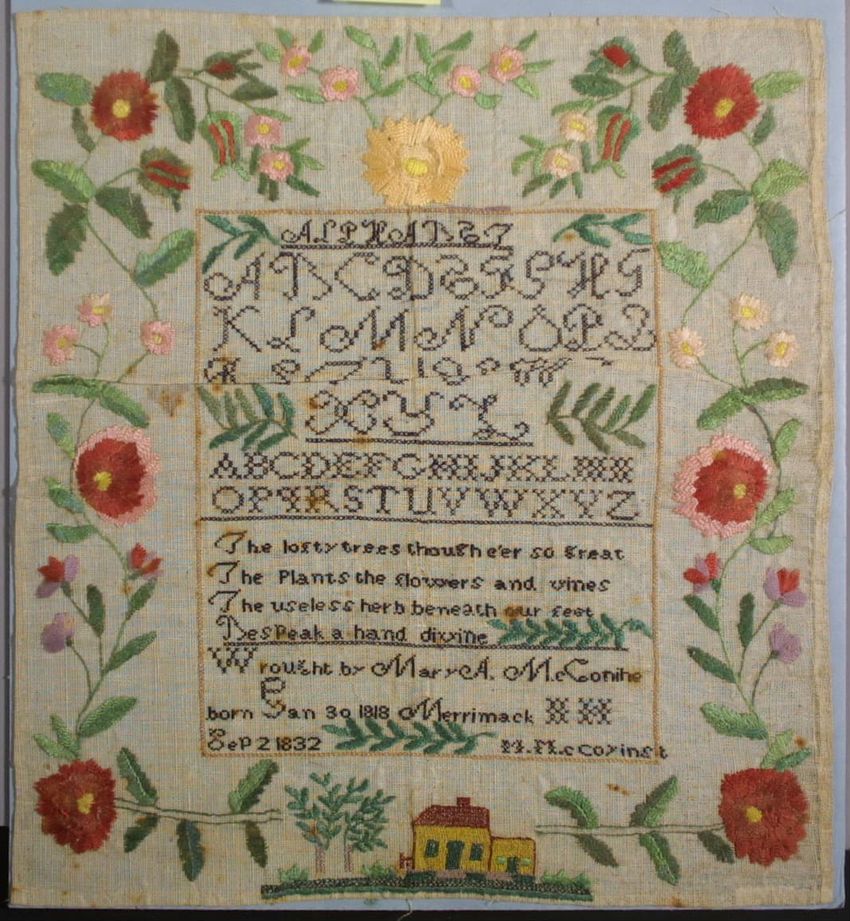 ALPHABET
A B C D E F G H I
K L M N O P Q
R
X Y Z
ABCDEFGHIJKLMN
OPQRSTUVWXYZ
The lofty trees though e'er so great
The Plants the flowers and vines
The useless herb beneath our feet
Bespeak a hand divine
Wrought by Mary A. McConihe
born Jan 30 1818 Merrimack N H
Sep 2 1832